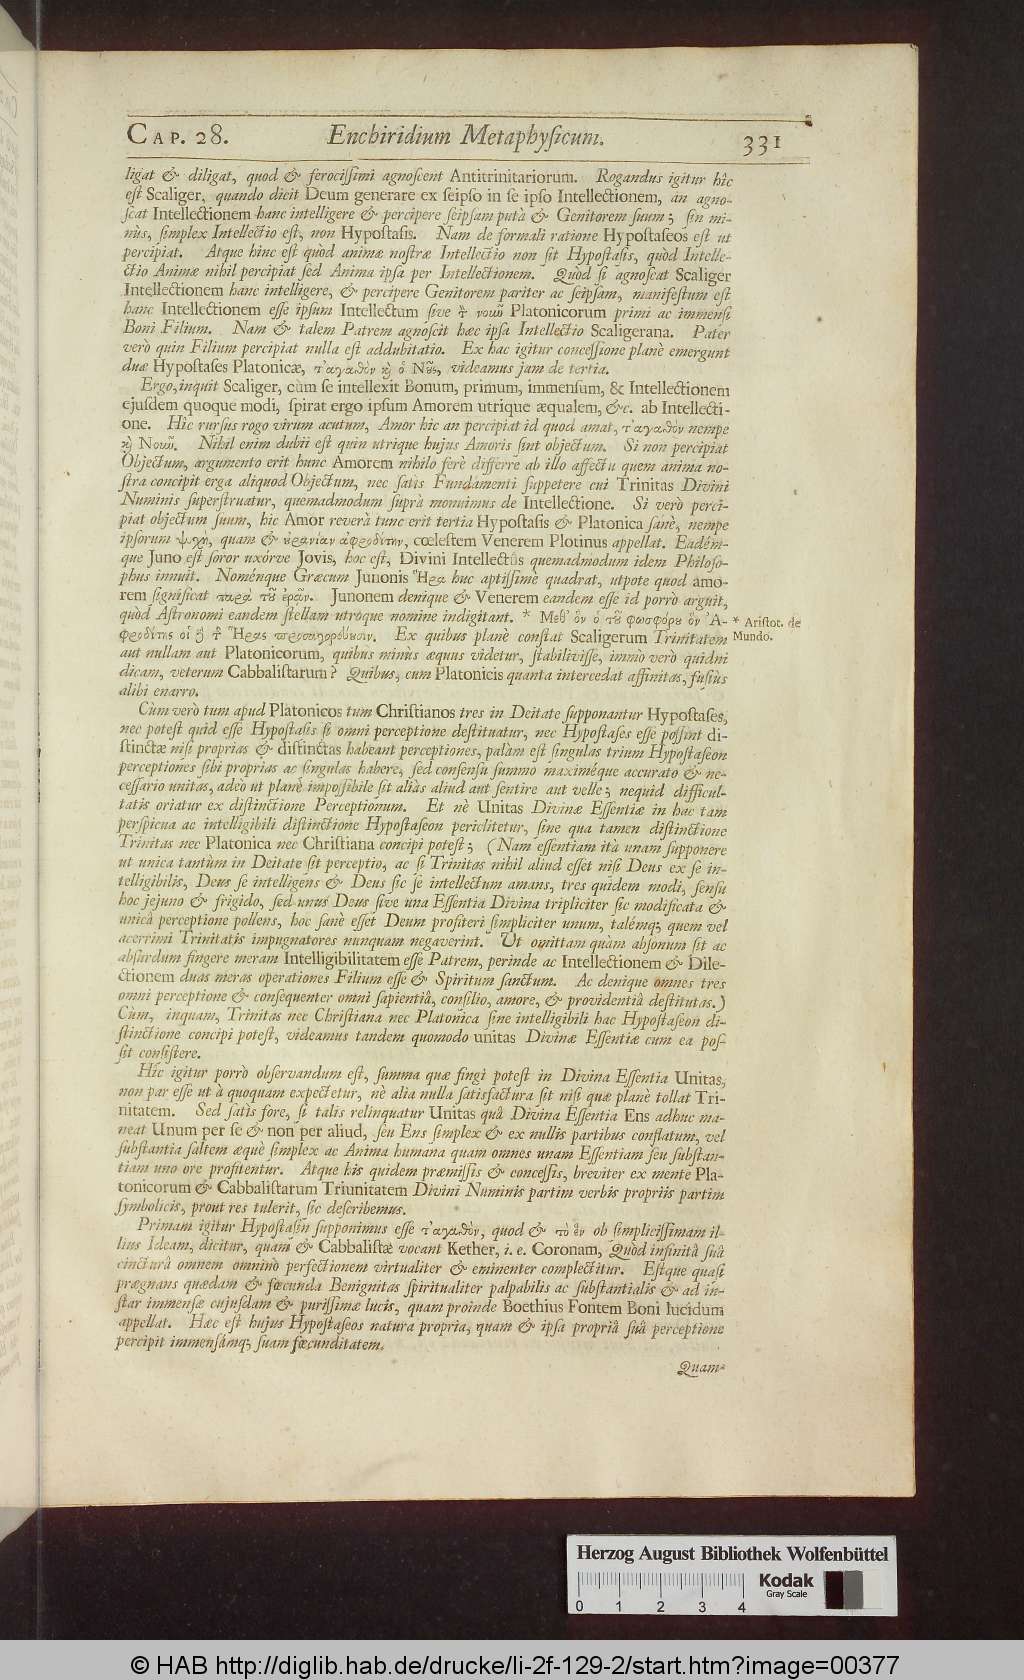 CAP. 28. Enchiridium Metaphysicum. 331
ligat & diligat, quod & ferocissimi agnoscent Antitrinitariorum. Rogandus igitur hîc
est Scaliger, quando dicit Deum generare ex seipso in se ipso Intellectionem, an agno-
scat Intellectionem hanc intelligere & percipere seipsam putà & Genitorem suum; sin mi-
nùs, simplex Intellectio est, non Hypostasis. Nam de formali ratione Hypostaseos est ut
percipiat. Atque hinc est quòd animæ nostræ Intellectio non sit Hypostasis, quòd Intelle-
ctio Animæ nihil percipiat sed Anima ipsa per Intellectionem. Quòd si agnoscat Scaliger
Intellectionem hanc intelligere, & percipere Genitorem pariter ac seipsam, manifestum est
hanc Intellectionem esse ipsum Intellectum sive τ̀ νοιῦ Platonicorum primi ac immensi
Boni Filium. Nam & talem Patrem agnoscit hæc ipsa Intellectio Scaligerana. Pater
verò quin Filium percipiat nulla est addubitatio. Ex hac igitur concessione planè emergunt
duæ Hypostases Platonicæ, τ'αγαθὸν κỳ ὁ Νοῦς, videamus jam de tertia.
Ergo, inquit Scaliger, cùm se intellexit Bonum, primum, immensum, & Intellectionem
ejusdem quoque modi, spirat ergo ipsum Amorem utrique æqualem, &c. ab Intellecti-
one. Hîc rursus rogo virum acutum, Amor hic an percipiat id quod amat, τ'αγαθὸν nempe
κỳ Νοιῦ. Nihil enim dubii est quin utrique hujus Amoris sint objectum. Si non percipiat
Objectum, argumento erit hunc Amorem nihilo ferè differre ab illo affectu quem anima no-
stra concipit erga aliquod Objectum, nec satis Fundamenti suppetere cui Trinitas Divini
Numinis superstruatur, quemadmodum suprà monuimus de Intellectione. Si verò perci-
piat objectum suum, hic Amor reverà tunc erit tertia Hypostasis & Platonica sanè, nempe
ipsorum ψυχὴ, quam & οὐρανίαν ἀφροδίτην, cœlestem Venerem Plotinus appellat. Eadém-
que Juno est soror uxórve Jovis, hoc est, Divini Intellectûs quemadmodum idem Philoso-
phus innuit. Noménque Græcum Junonis Ἥρα huc aptissimè quadrat, utpote quod amo-
rem significat παρὰ τοῦ ἐρᾷν. Junonem denique & Venerem eandem esse id porrò arguit,
quòd Astronomi eandem stellam utroque nomine indigitant. * Μεθ' ὃν ὁ τοῦ φωσφόρου ὃν Ἀ-
φροδίτης οἱ δὲ τ̀ Ἥρας προσαγορεύουσιν. Ex quibus planè constat Scaligerum Trinitatem
* Aristot. de
Mundo.
aut nullam aut Platonicorum, quibus minùs æquus videtur, stabilivisse, immò verò quidni
dicam, veterum Cabbalistarum? Quibus, cum Platonicis quanta intercedat affinitas, fusiùs
alibi enarro.
Cùm verò tum apud Platonicos tum Christianos tres in Deitate supponantur Hypostases,
nec potest quid esse Hypostasis si omni perceptione destituatur, nec Hypostases esse possint di-
stinctæ nisi proprias & distinctas habeant perceptiones, palàm est singulas trium Hypostaseων
perceptiones sibi proprias ac singulas habere, sed consensu summo maximéque accurato & ne-
cessario unitas, adeò ut planè impossibile sit aliàs aliud aut sentire aut velle; nequid difficul-
tatis oriatur ex distinctione Perceptionum. Et nè Unitas Divinæ Essentiæ in hac tam
perspicua ac intelligibili distinctione Hypostaseων periclitetur, sine qua tamen distinctione
Trinitas nec Platonica nec Christiana concipi potest; (Nam essentiam ità unam supponere
ut unica tantùm in Deitate sit perceptio, ac si Trinitas nihil aliud esset nisi Deus ex se in-
telligibilis, Deus se intelligens & Deus sic se intellectum amans, tres quidem modi, sensu
hoc jejuno & frigido, sed unus Deus sive una Essentia Divina tripliciter sic modificata &
unicâ perceptione pollens, hoc sanè esset Deum profiteri simpliciter unum, talémq; quem vel
acerrimi Trinitatis impugnatores nunquam negaverint. Ut omittam quàm absonum sit ac
absurdum fingere meram Intelligibilitatem esse Patrem, perinde ac Intellectionem & Dile-
ctionem duas meras operationes Filium esse & Spiritum sanctum. Ac denique omnes tres
omni perceptione & consequenter omni sapientiâ, consilio, amore, & providentiâ destitutas.)
Cùm, inquam, Trinitas nec Christiana nec Platonica sine intelligibili hac Hypostaseων di-
stinctione concipi potest, videamus tandem quomodo unitas Divinæ Essentiæ cum ea pos-
sit consistere.
Hîc igitur porrò observandum est, summa quæ fingi potest in Divina Essentia Unitas,
non par esse ut à quoquam expectetur, nè alia nulla satisfactura sit nisi quæ planè tollat Tri-
nitatem. Sed satìs fore, si talis relinquatur Unitas quâ Divina Essentia Ens adhuc ma-
neat Unum per se & non per aliud, seu Ens simplex & ex nullis partibus conflatum, vel
substantia saltem æquè simplex ac Anima humana quam omnes unam Essentiam seu substan-
tiam uno ore profitentur. Atque his quidem præmissis & concessis, breviter ex mente Pla-
tonicorum & Cabbalistarum Triunitatem Divini Numinis partim verbis propriis partim
symbolicis, prout res tulerit, sic describemus.
Primam igitur Hypostasin supponimus esse τ'αγαθὸν, quod & τὸ ἓν ob simplicissimam il-
lius Ideam, dicitur, quam & Cabbalistæ vocant Kether, i. e. Coronam, Quòd infinitâ suâ
cincturâ omnem omninò perfectionem virtualiter & eminenter complectitur. Estque quasi
prægnans quædam & fœcunda Benignitas spiritualiter palpabilis ac substantialis & ad in-
star immensæ cujusdam & purissimæ lucis, quam proinde Boethius Fontem Boni lucidum
appellat. Hæc est hujus Hypostaseos natura propria, quam & ipsa propriâ suâ perceptione
percipit immensámq; suam fœcunditatem.
Quam-
Herzog August Bibliothek Wolfenbüttel
0 1 2 3 4
Kodak
Gray Scale
© HAB http://diglib.hab.de/drucke/li-2f-129-2/start.htm?image=00377